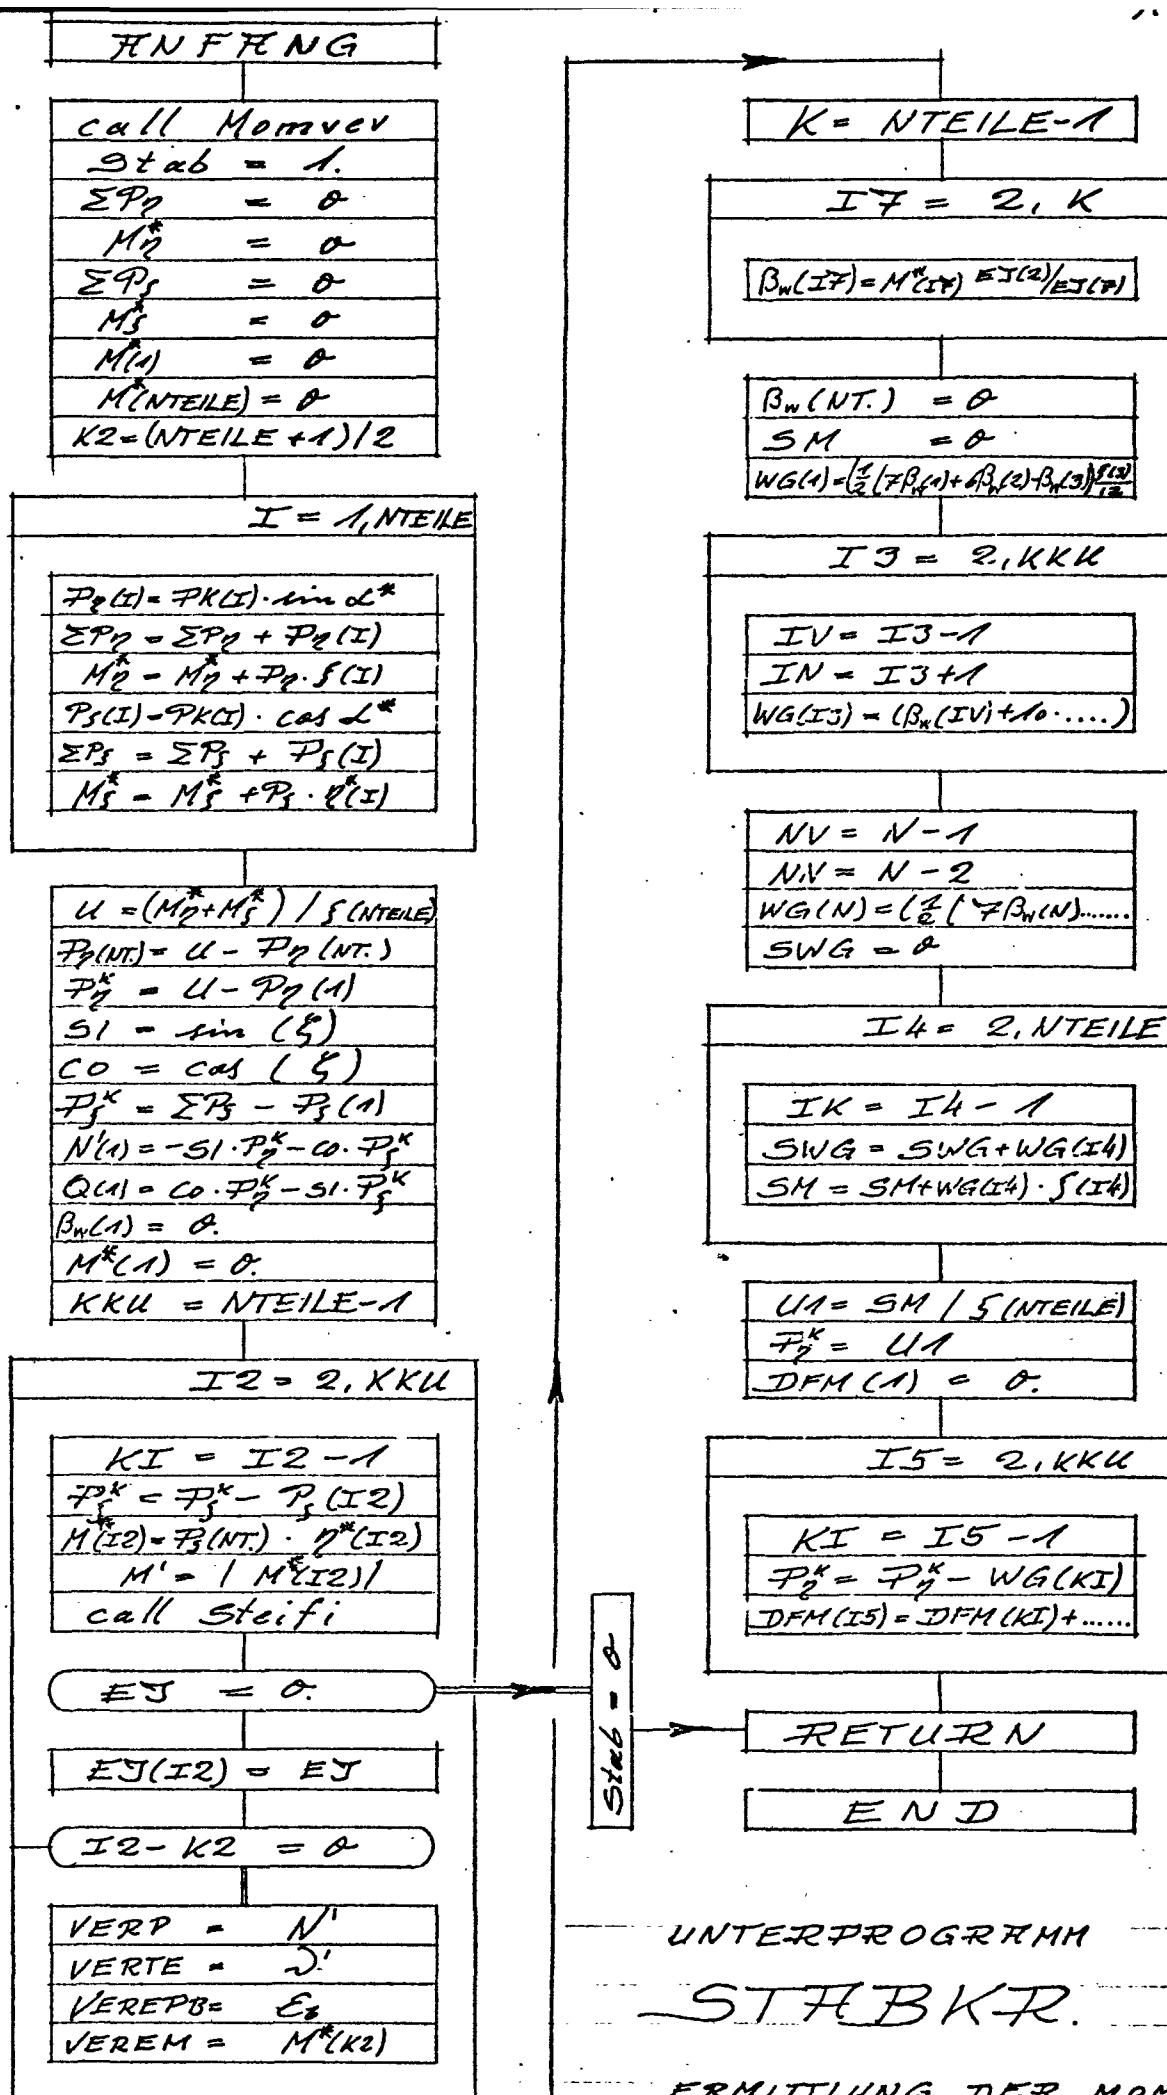 ANFANG
call Momver
Stab = 1.
ΣPη = 0
M*η = 0
ΣPζ = 0
M*ζ = 0
M*(1) = 0
M*(NTEILE) = 0
K2=(NTEILE+1)/2
I = 1, NTEILE
Pη(I) = PK(I) · sin α*
ΣPη = ΣPη + Pη(I)
M*η = M*η + Pη · ζ(I)
Pζ(I) = PK(I) · cos α*
ΣPζ = ΣPζ + Pζ(I)
M*ζ = M*ζ + Pζ · η*(I)
U = (M*η + M*ζ) / ζ(NTEILE)
Pη(NT.) = U - Pη(NT.)
Pηᴷ = U - Pη(1)
SI = sin (ξ)
CO = cos (ξ)
Pζᴷ = ΣPζ - Pζ(1)
N'(1) = -SI·Pηᴷ - CO·Pζᴷ
Q(1) = CO·Pηᴷ - SI·Pζᴷ
βw(1) = 0.
M*(1) = 0.
KKU = NTEILE-1
I2 = 2, KKU
KI = I2-1
Pζᴷ = Pζᴷ - Pζ(I2)
M*(I2) = Pζ(NT.) · η*(I2)
M' = / M*(I2) /
call Steifi
EJ = 0.
EJ(I2) = EJ
I2-K2 = 0
VERP = N'
VERTE =
VEREPB= εb
VEREM = M*(K2)
Stab = 0
K = NTEILE-1
I7 = 2, K
βw(I7) = M*(I7) EJ(2)/EJ(7)
βw(NT.) = 0
SM = 0
WG(1) = (½(7βw(1)+6βw(2)-βw(3)) ζ(3)/12
I3 = 2, KKU
IV = I3-1
IN = I3+1
WG(I3) = (βw(IV)+10·....)
NV = N-1
NN = N-2
WG(N) = (½(7βw(N).......
SWG = 0
I4 = 2, NTEILE
IK = I4-1
SWG = SWG+WG(I4)
SM = SM+WG(I4) · ζ(I4)
U1 = SM / ζ(NTEILE)
Pηᴷ = U1
DFM(1) = 0.
I5 = 2, KKU
KI = I5-1
Pηᴷ = Pηᴷ - WG(KI)
DFM(I5) = DFM(KI)+......
RETURN
END
UNTERPROGRAMM
STABKR.
ERMITTLUNG DER